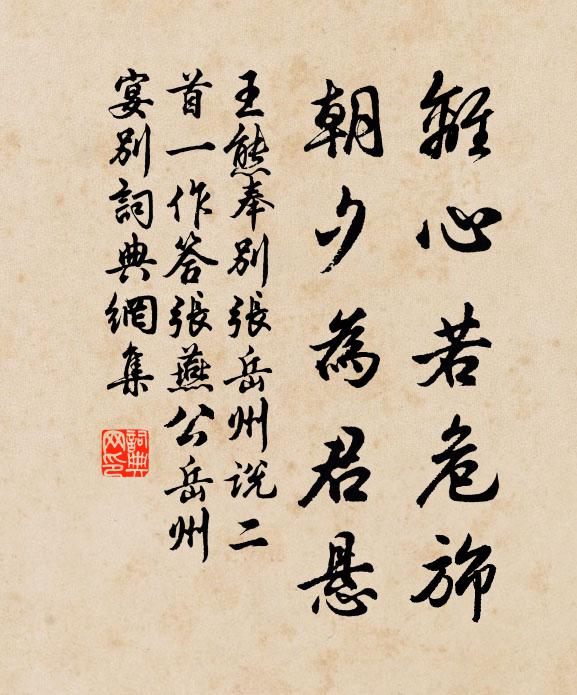 離心若危旆
朝夕為君悬
王熊奉別張岳州說二
首一作答張燕公岳州
宴別詞典網集
詞典网印